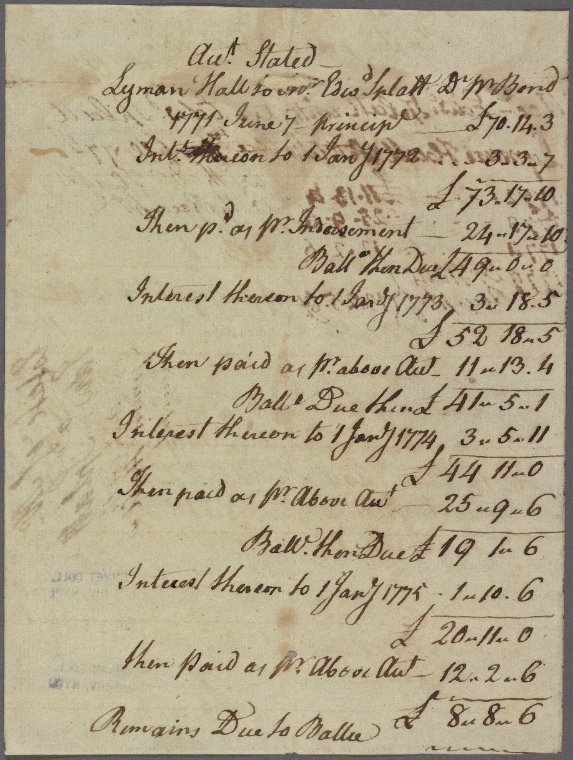 Acct Stated
Lyman Hall to Dr pr Bond
1771 June 7 principl £70.14.3
Intt thereon to 1 Jany 1772 3.3.7
£73.17.10
Then pd as pr Indorsement — 24.17.10
Balle then Due £49.0.0
Interest thereon to 1 Jany 1773 3.18.5
£52 18.5
Then paid as pr above Acct — 11.13.4
Balle Due then £41.5.1
Interest thereon to 1 Jany 1774 3.5.11
£44 11.0
Then paid as pr Above Acct — 25.9.6
Balle. then Due £19 1.6
Interest thereon to 1 Jany 1775 - 1.10.6
£20.11.0
then paid as pr Above Acct — 12.2.6
Remains Due to Balle £8.8.6